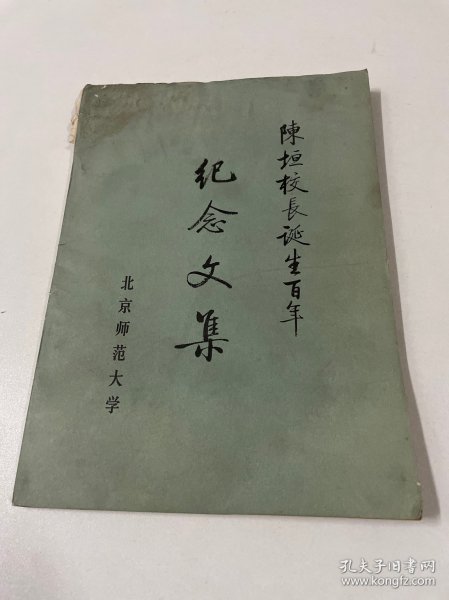 陳垣校長誕生百年
纪念文集
北京师范大学
孔夫子旧书网
www.kongfz.com